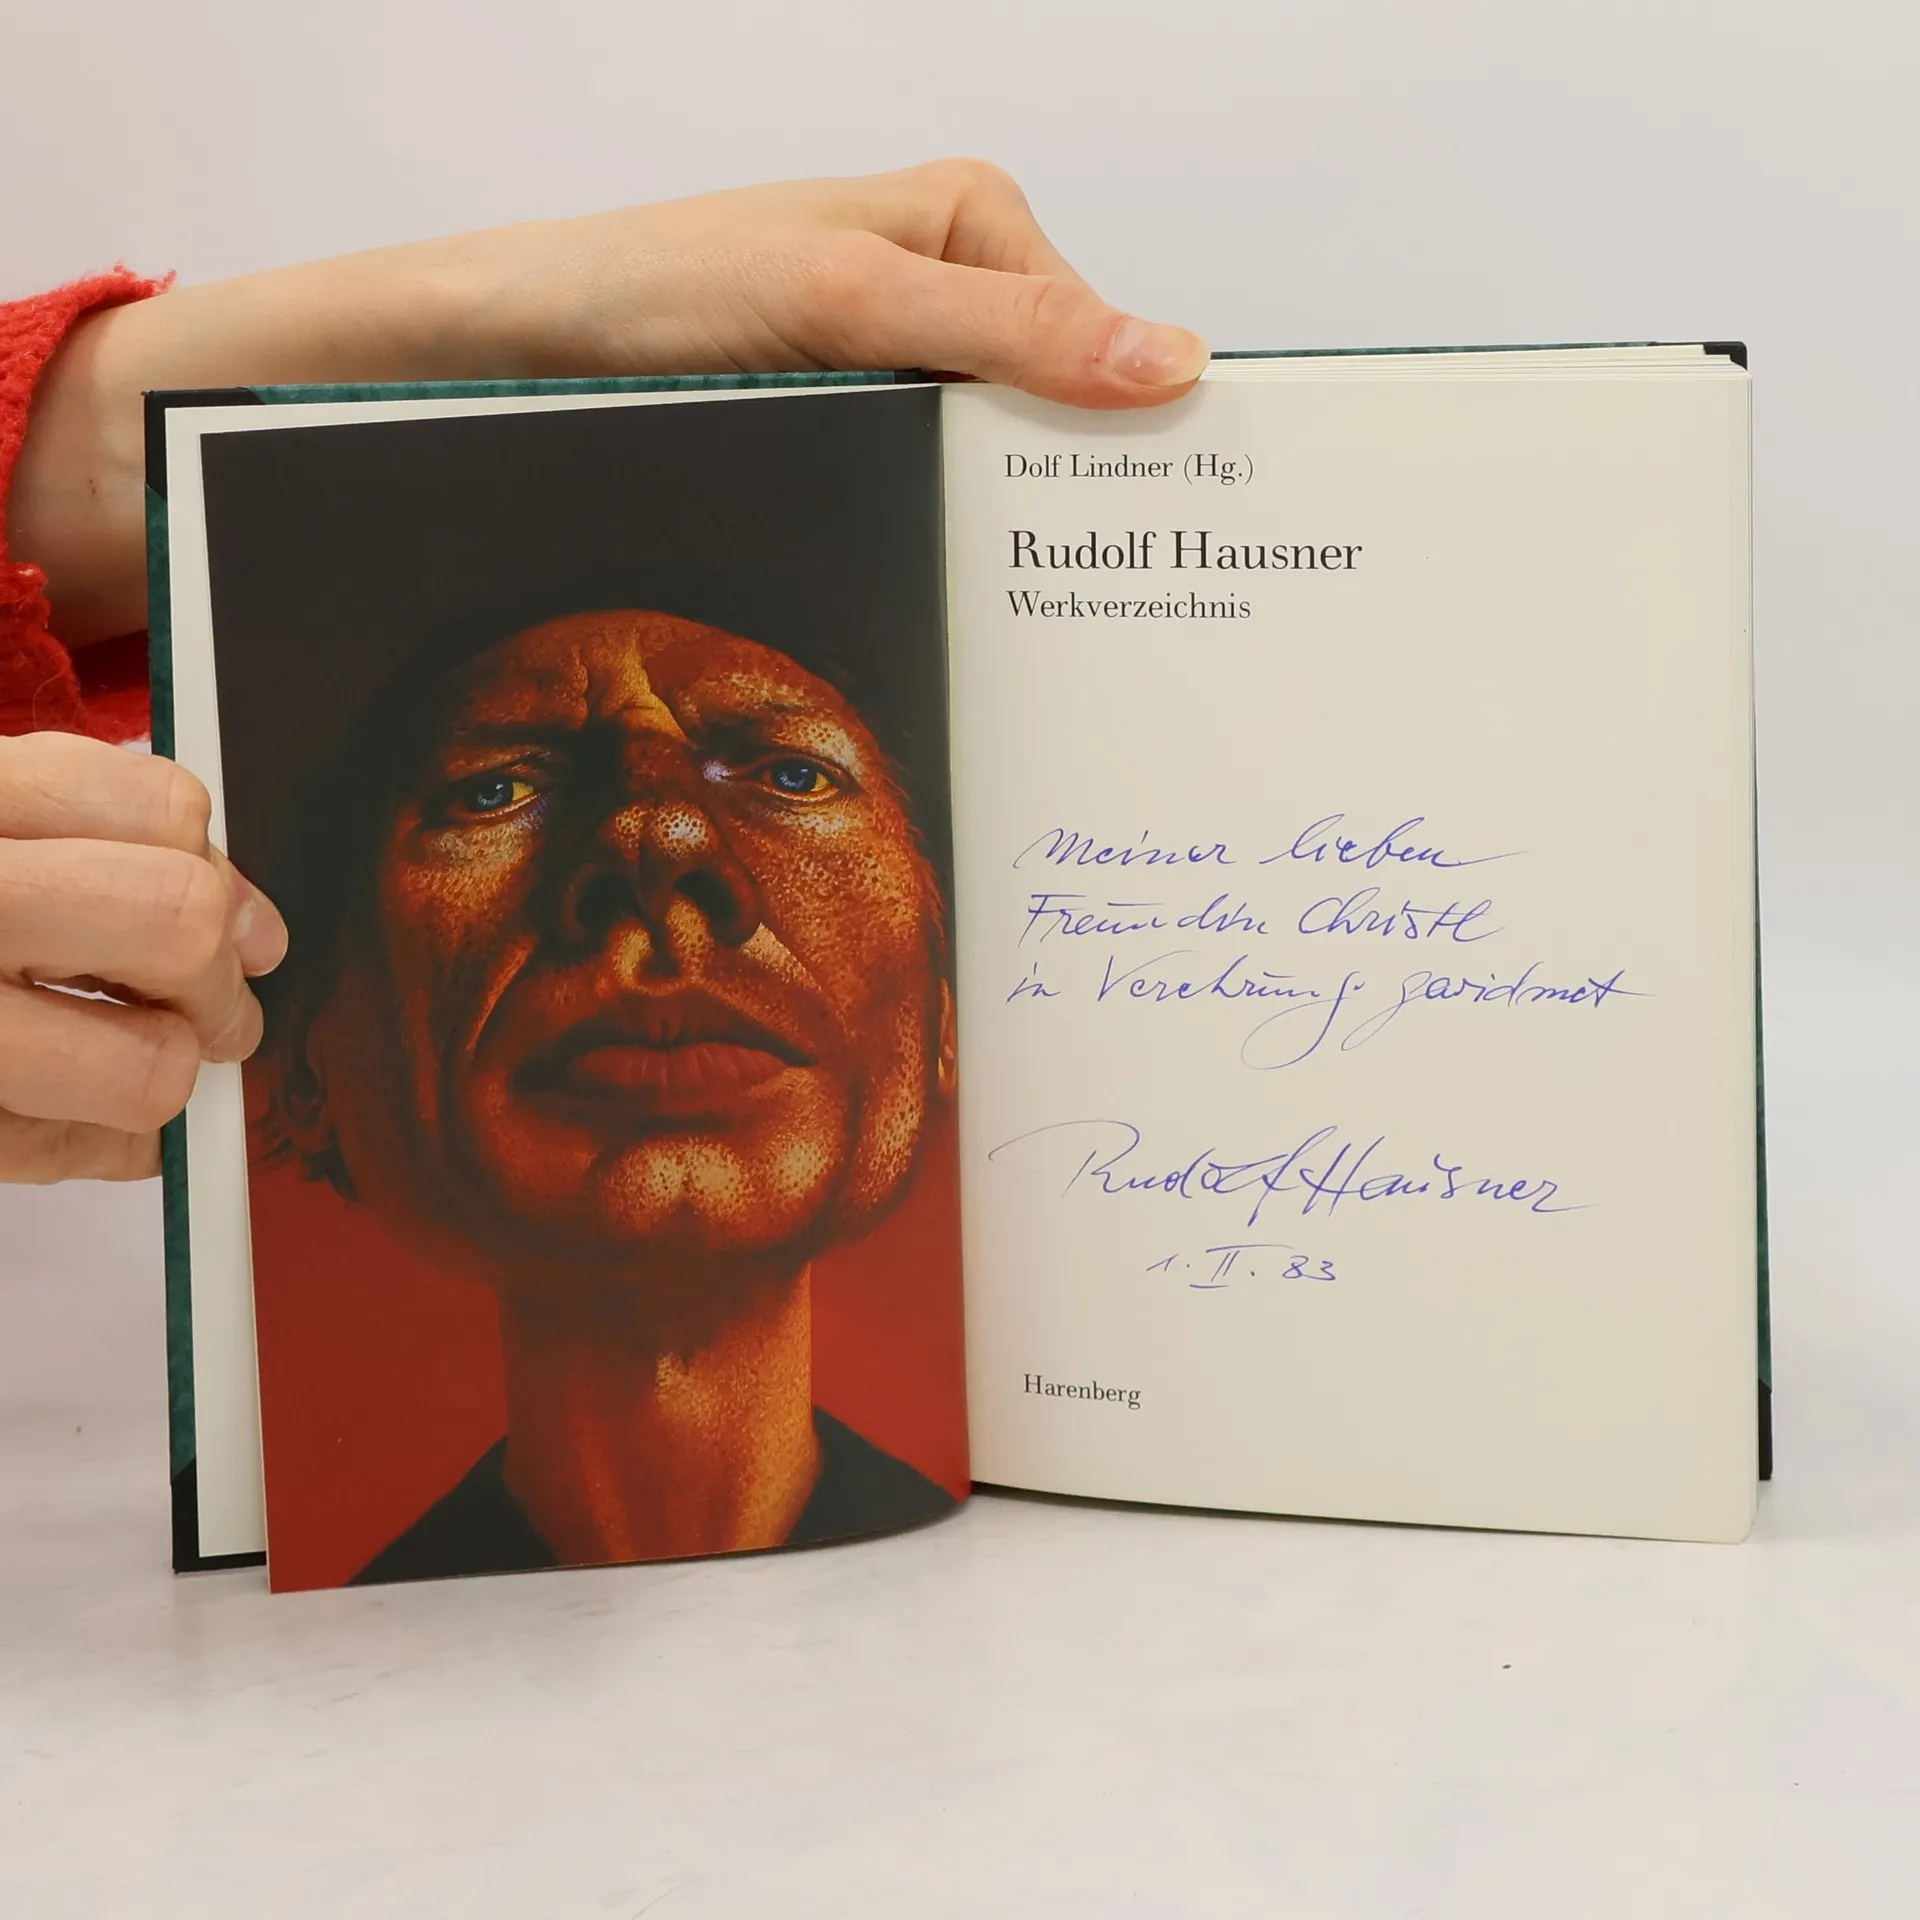 Dolf Lindner (Hg.)
Rudolf Hausner
Werkverzeichnis
Meiner lieben
Freundin Christl
in Verehrung gewidmet
Rudolf Hausner
1. II. 83
Harenberg